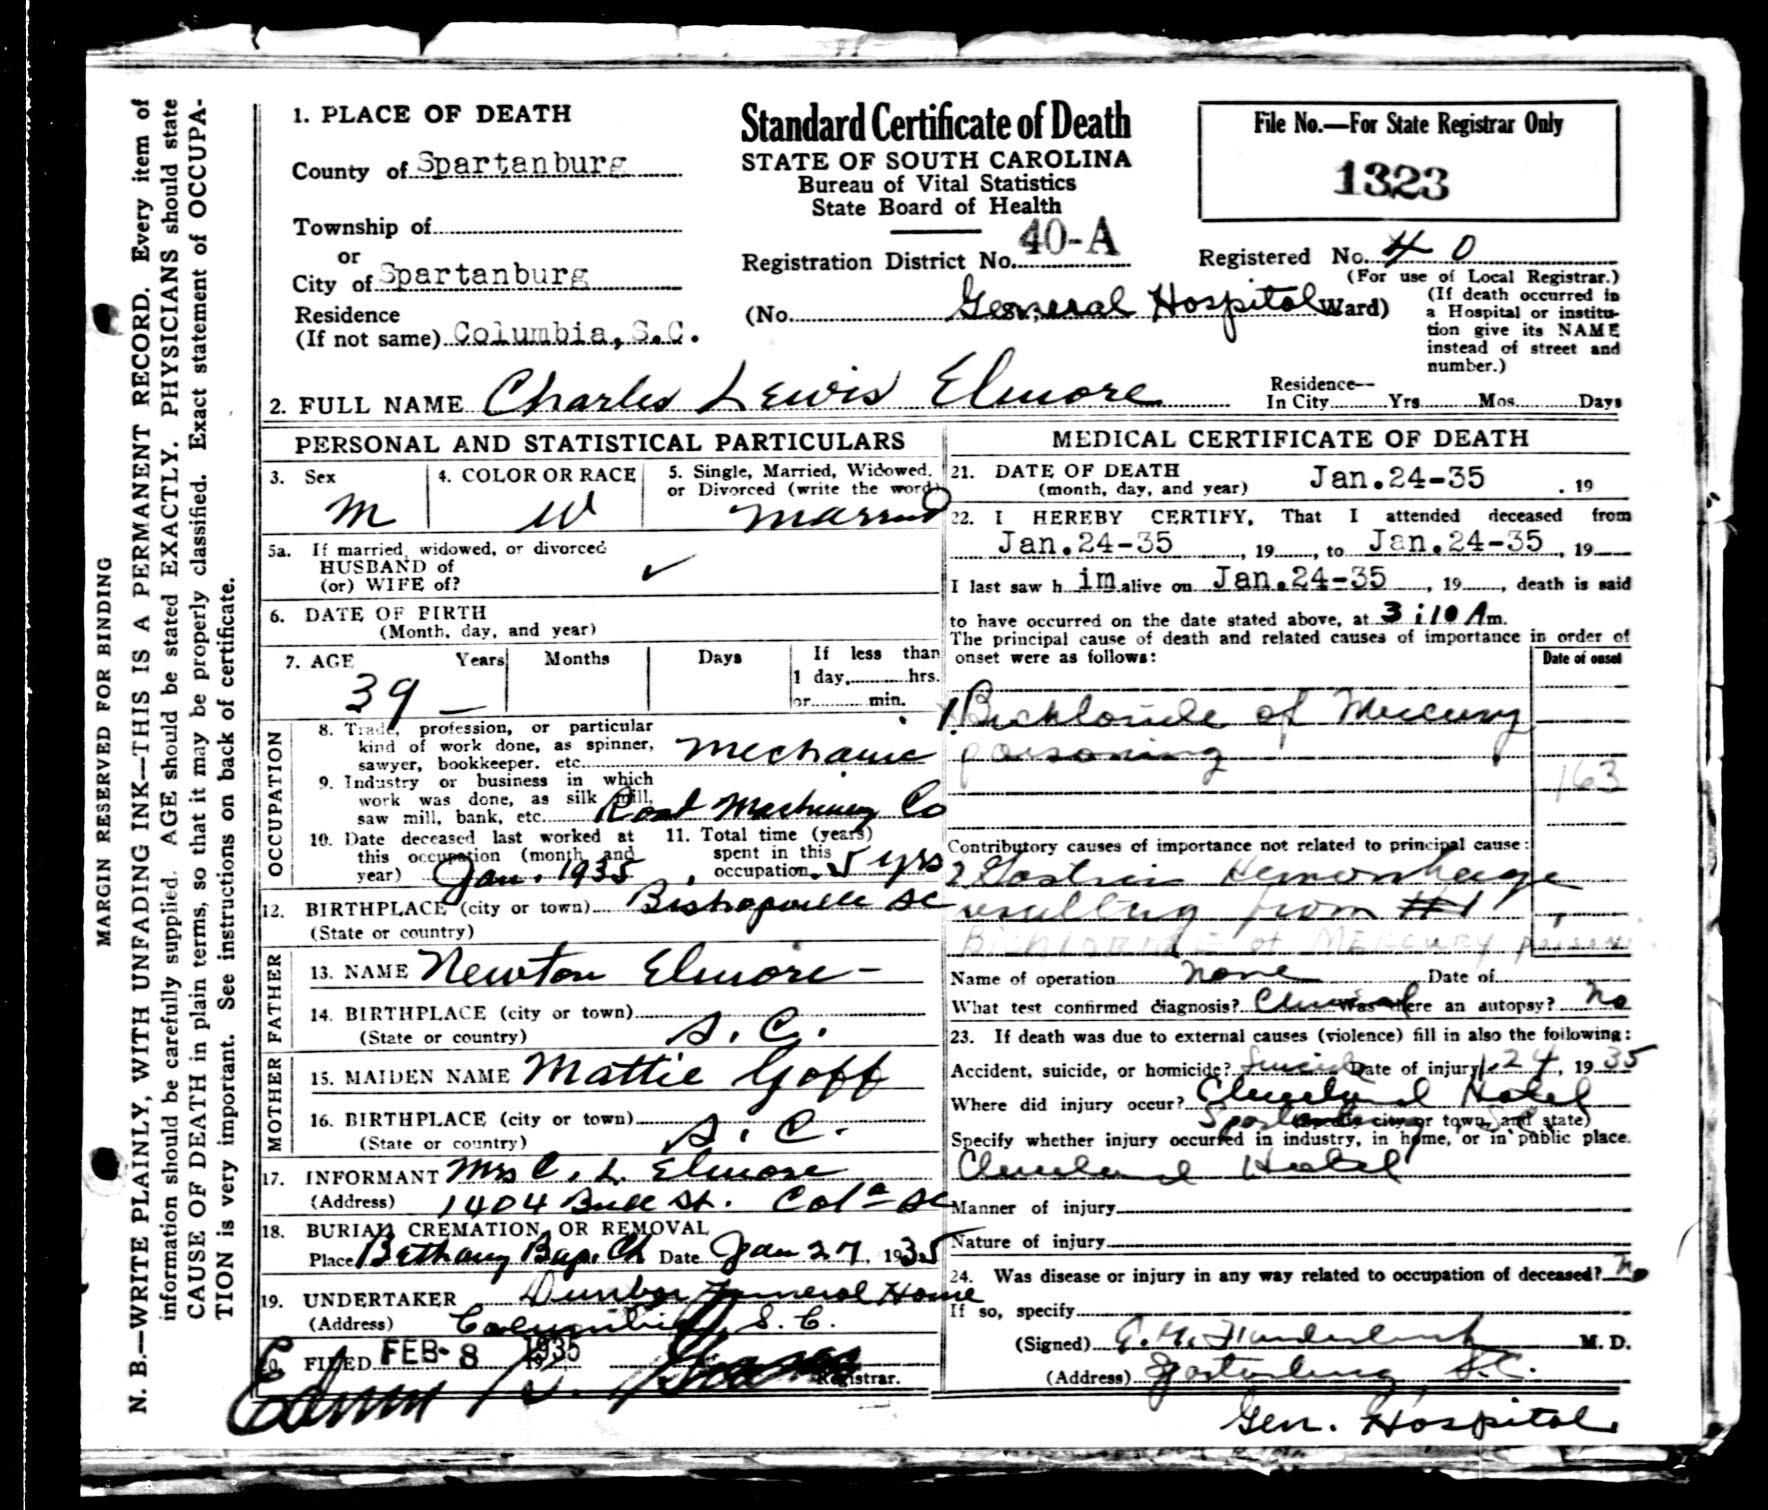 N. B.—WRITE PLAINLY, WITH UNFADING INK—THIS IS A PERMANENT RECORD. Every item of
information should be carefully supplied. AGE should be stated EXACTLY. PHYSICIANS should state
CAUSE OF DEATH in plain terms, so that it may be properly classified. Exact statement of OCCUPA-
TION is very important. See instructions on back of certificate.
MARGIN RESERVED FOR BINDING
1. PLACE OF DEATH
County of Spartanburg
Township of
or
City of Spartanburg
Residence
(If not same) Columbia, S.C.
Standard Certificate of Death
STATE OF SOUTH CAROLINA
Bureau of Vital Statistics
State Board of Health
Registration District No. 40-A
(No. General Hospital Ward)
File No.—For State Registrar Only
1323
Registered No. 40
(For use of Local Registrar.)
(If death occurred in
a Hospital or institu-
tion give its NAME
instead of street and
number.)
2. FULL NAME Charles Lewis Elmore
Residence--
In City Yrs Mos. Days
PERSONAL AND STATISTICAL PARTICULARS
3. Sex
M
4. COLOR OR RACE
W
5. Single, Married, Widowed.
or Divorced (write the word)
Married
5a. If married, widowed, or divorced
HUSBAND of
(or) WIFE of?
6. DATE OF BIRTH
(Month, day, and year)
7. AGE Years Months Days
39 —
If less than
1 day, hrs.
or min.
OCCUPATION
8. Trade, profession, or particular
kind of work done, as spinner,
sawyer, bookkeeper, etc. Mechanic
9. Industry or business in which
work was done, as silk mill,
saw mill, bank, etc. Road Machinery Co
10. Date deceased last worked at
this occupation (month and
year) Jan. 1935
11. Total time (years)
spent in this
occupation. 5 yrs
12. BIRTHPLACE (city or town) Bishopville SC
(State or country)
FATHER
13. NAME Newton Elmore —
14. BIRTHPLACE (city or town)
(State or country) S. C.
MOTHER
15. MAIDEN NAME Mattie Goff
16. BIRTHPLACE (city or town)
(State or country) S. C.
17. INFORMANT Mrs C. L. Elmore
(Address) 1404 Bull St. Cola SC
18. BURIAL CREMATION OR REMOVAL
Place Bethany Bap. Ch Date Jan 27, 1935
19. UNDERTAKER Dunbar Funeral Home
(Address) Columbia, S. C.
20. FILED FEB-8 1935
Registrar.
MEDICAL CERTIFICATE OF DEATH
21. DATE OF DEATH
(month, day, and year) Jan.24-35 . 19
22. I HEREBY CERTIFY, That I attended deceased from
Jan.24-35, 19, to Jan.24-35, 19
I last saw h im alive on Jan.24-35, 19, death is said
to have occurred on the date stated above, at 3:10 Am.
The principal cause of death and related causes of importance in order of
onset were as follows:
Date of onset
1. Bichloride of Mercury
poisoning
163
Contributory causes of importance not related to principal cause:
2 Gastric Hemorrhage
resulting from #1
BICHLORIDE of MERCURY poison
Name of operation none Date of
What test confirmed diagnosis? Clinical Was there an autopsy? No
23. If death was due to external causes (violence) fill in also the following:
Accident, suicide, or homicide? Suicide Date of injury 1.24, 1935
Where did injury occur? Cleveland Hotel
Spartanburg, S.C.
(Specify city or town, and state)
Specify whether injury occurred in industry, in home, or in public place.
Cleveland Hotel
Manner of injury
Nature of injury
24. Was disease or injury in any way related to occupation of deceased? No
If so, specify
(Signed) M. D.
(Address) Spartanburg, S.C.
Gen. Hospital